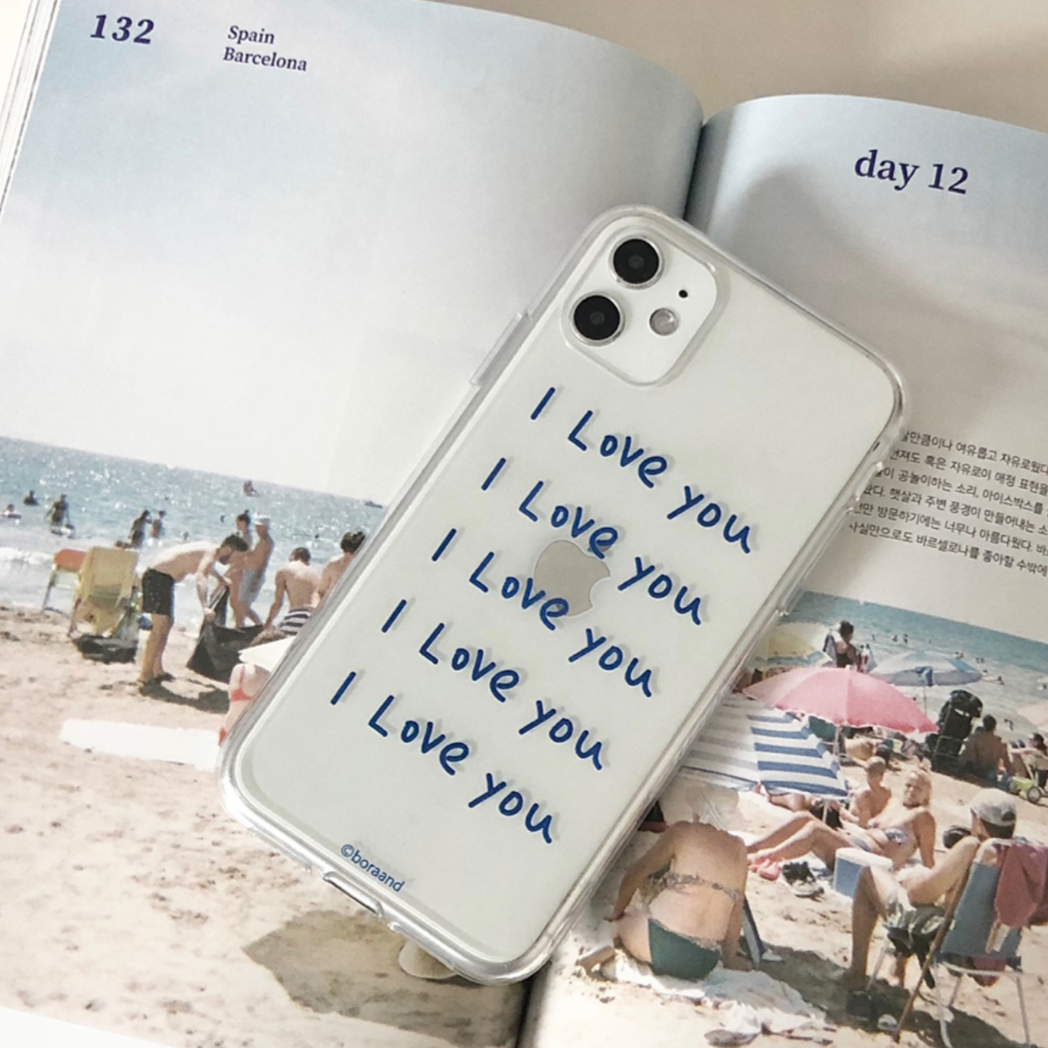 132
Spain
Barcelona
day 12
만큼이나 여유롭고 자유로웠다
혹은 자유로이 애정 표현을
공놀이하는 소리, 아이스박스를
햇살과 주변 풍경이 만들어내는 소
방문하기에는 너무나 아름다웠다. 바
사실만으로도 바르셀로나를 좋아할 수밖에
I Love you
I Love you
I Love you
I Love you
I Love you
©boraand